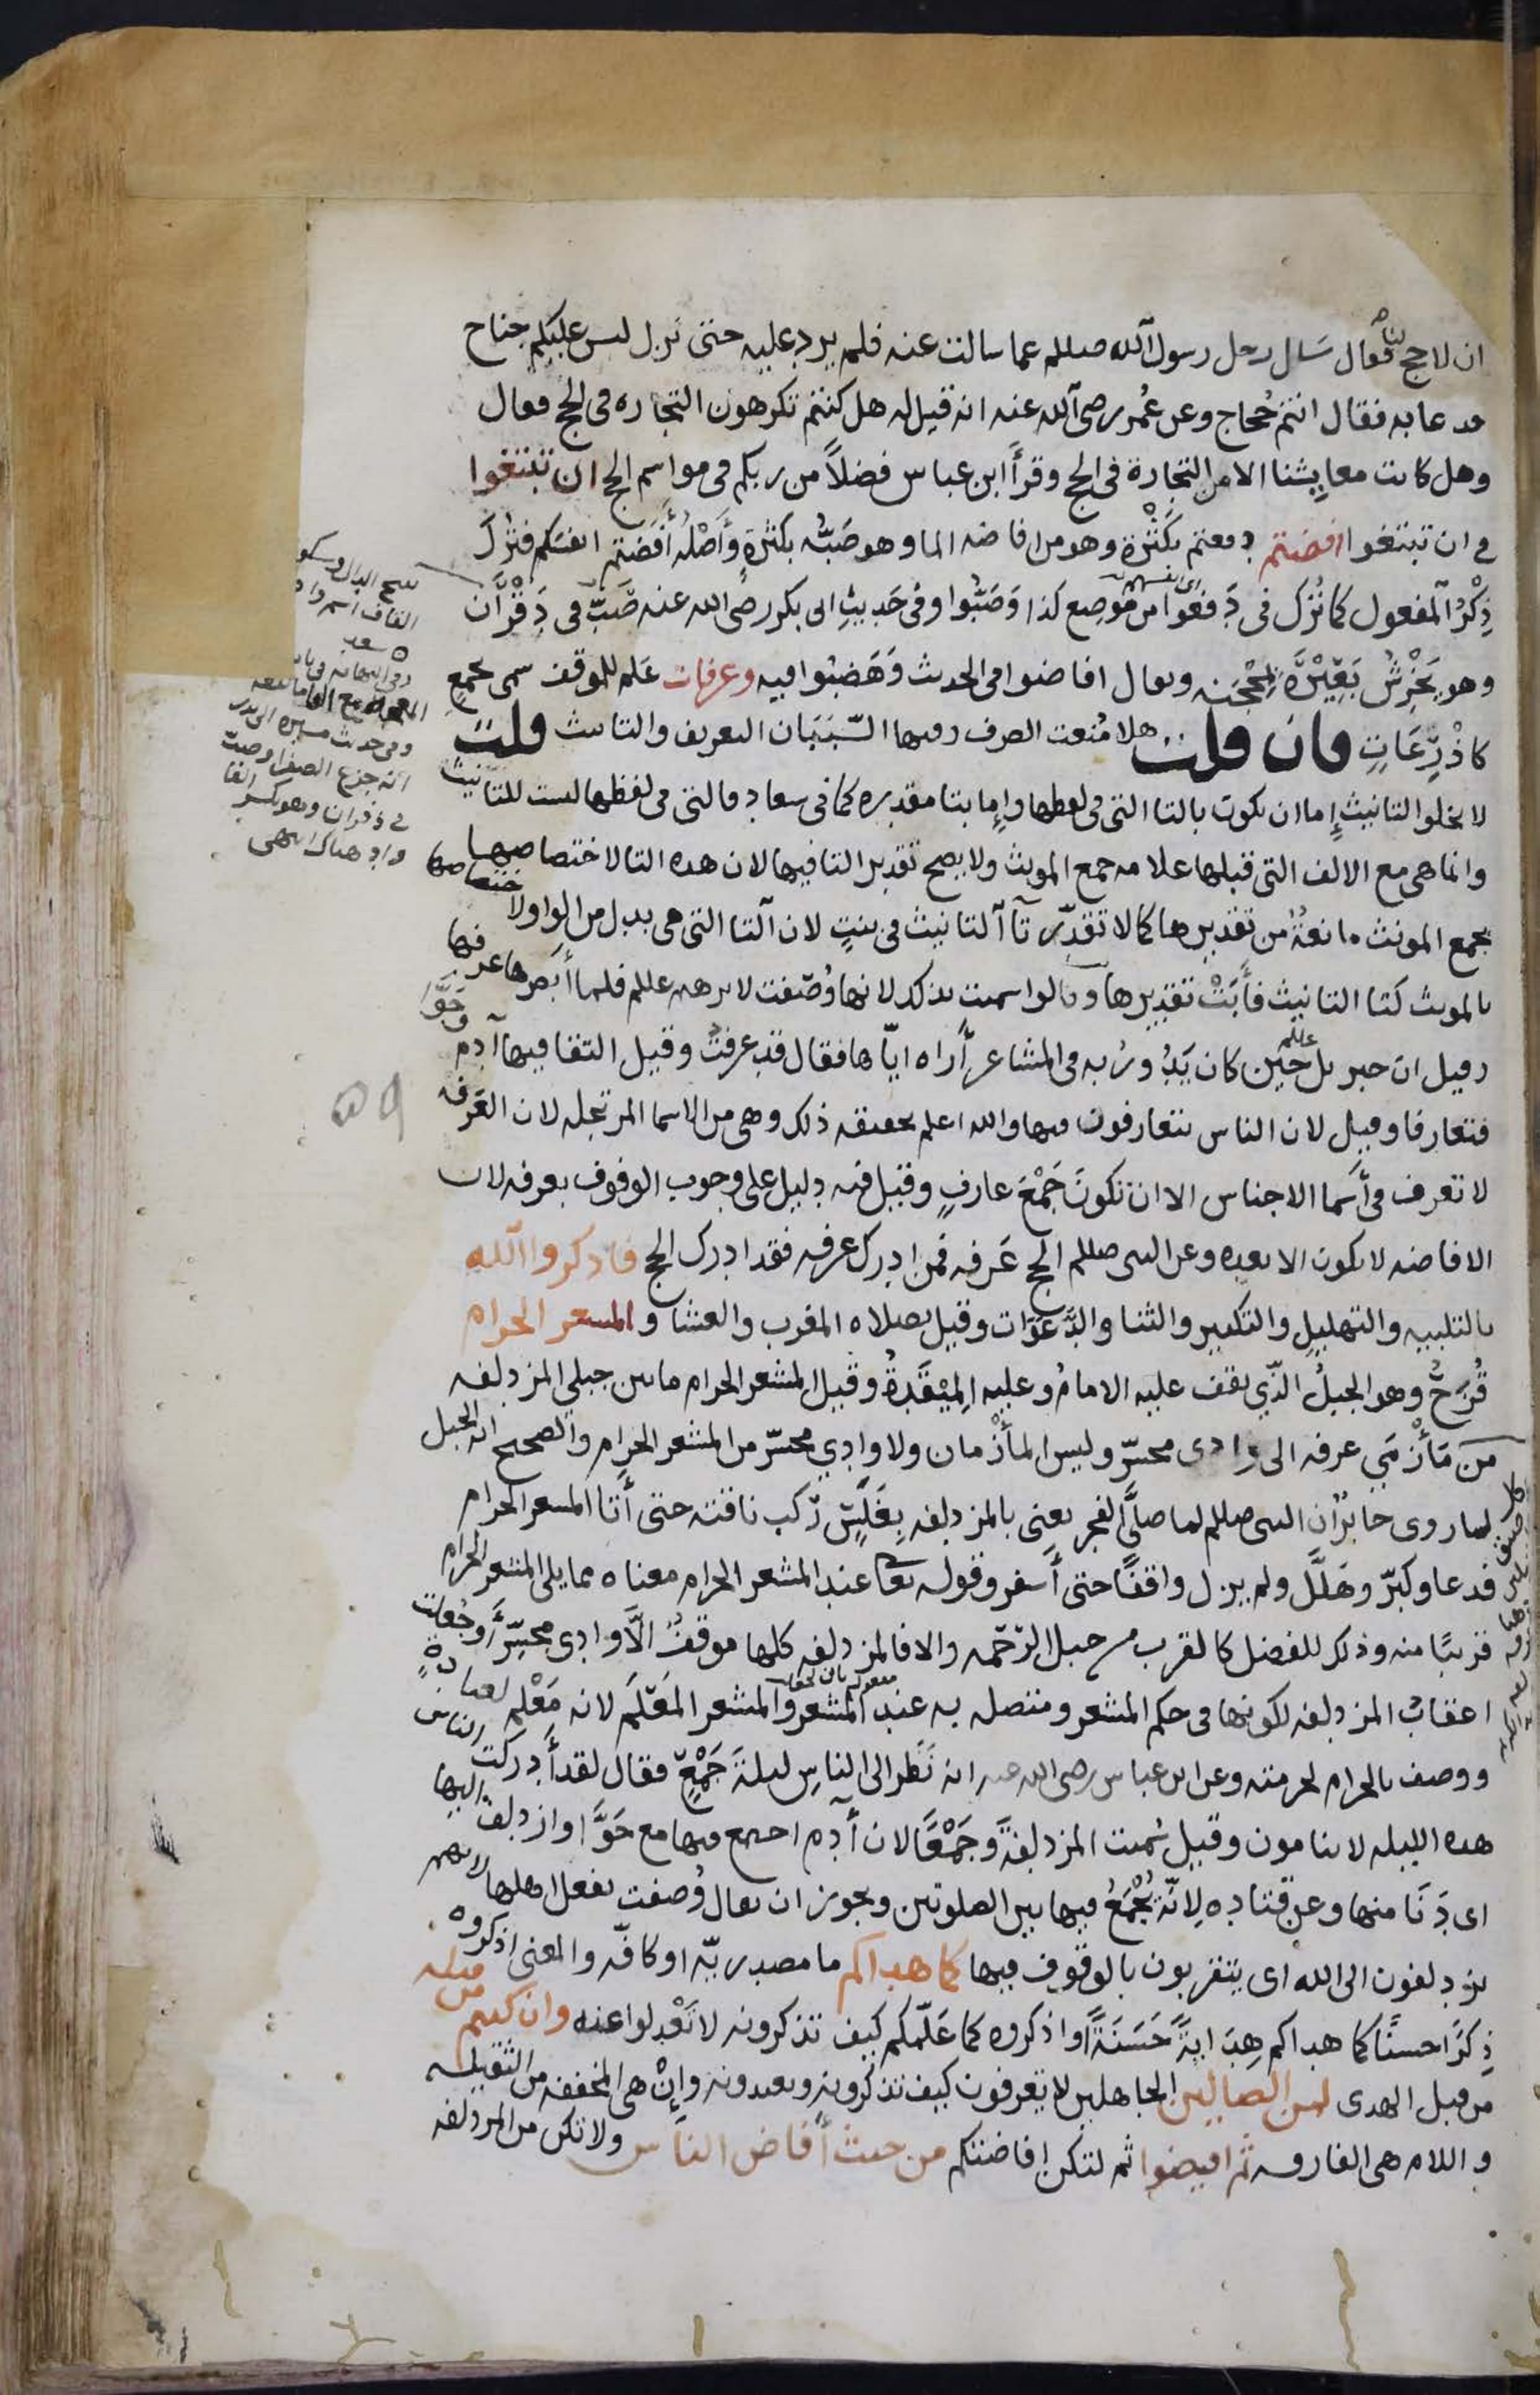 ان لا حج لنا فقال سَال رجل رسول الله صللم عما سالت عنه فلم يرد عليه حتى نزل ليس عليكم جناح
فدعا به فقال انتم حُجاج وعن عُمر رضى الله عنه انه قيل له هل كنتم تكرهون التجاره فى الحج فقال
وهل كانت معايِشنا الا من التجارة فى الحج وقرأَ ابن عباس فضلاً من ربكم فى مواسم الحج ان تبتغوا
فى ان تبتغوا افضتم دفعتم بكَثْرة وهو من افاضه الما وهو صَبُّه بكَثرةٍ وأَصْلُه أَفَضتم انفسَكم فتُرِكَ
ذِكْرُ المفعول كما تُرِك فى دَفعُوا من موضِع كذا وَصَبُّوا وفى حَديثِ ابى بكر رضى الله عنه صَبَّ فى دَقْرَان
وهو يَخْرِشُ بَعِيْرَهُ بِمِحْجَنِه ويقال افاضوا فى الحديث وَهَضَبُوا فيه وعرفات عَلم للموقف سمى بجمعٍ
كاذْرِعَاتٍ فان قلت هلا مُنعت الصرف وفيها السَّبَبَان التعريف والتانيث قلت
لا يخلوا التانيث إِما ان يكون بالتا التى فى لفظها وإِما بتا مقدره كما فى سعاد فالتى فى لفظها ليست للتانيث
وانما هى مع الالف التى قبلها علامه جمع المونث ولا يصح تقدير التا فيها لان هده التا لاختصاصها
بجمع المونث مانعةٌ من تقديرها كما لا تقدّر تآ التانيث فى بنتٍ لان التا التى هى بدل من الواو لاختصاصها
بالمونث كتا التانيث فأَبَتْ تقديرها وقالوا سميت بذلك لانها وُصّفت لابرهيم عللم فلما أَبصرها عرفها
وقيل ان جبريل عللم حين كان يَدُورُ به فى المشاعر أَراه ايّاها فقال قد عرفتُ وقيل التقا فيها آدم وحَوَّا
فتعارفا وقيل لان الناس يتعارفون فيها والله اعلم بحقيقه ذلك وهى من الاسما المرتجله لان العَرَفه
لا تعرف فى أَسما الاجناس الا ان تكونَ جَمْعَ عارفٍ وقيل فيه دليل على وجوب الوقوف بعرفه لان
الافاضه لا تكون الا بعده وعن النبى صللم الحج عَرفه فمن ادرك عرفه فقد ادرك الحج فاذكروا الله
بالتلبيه والتهليل والتكبير والثنا والدَّعَوَات وقيل بصلاه المغرب والعشا والمشعر الحرام
قُزَحُ وهو الجبلُ الذى يقف عليه الامامُ وعليه المِيْقَدةُ وقيل المشعر الحرام مابين جبلي المزدلفه
مَن مَأْزمَي عرفه الى وادى محسّر وليس المأْزمان ولا وادِي محسّر من المشعر الحرام والصحيح انه الجبل
لما روى جابرٌ ان النبى صللم لما صلَّى الفجر يعنى بالمزدلفه بِغَلَسٍ ركب ناقته حتى أَتا المشعر الحرام
فدعا وكبّر وهَلَّلَ ولم يزل واقفًا حتى أَسفر وقوله تعا عند المشعر الحرام معناه مما يلى المشعر الحرام
قريبًا منه وذلك للفضل كالقرب من جبل الرّحمه والا فالمزدلفه كلها موقفٌ الَّا وادى محسِّر أَو جُعلت
اعقابُ المزدلفه لكونها فى حكم المشعر ومتصله به عند المشعر والمشعر المَعْلَم لانه مَعْلم لعبادةٍ
ووصف بالحرام لحرمته وعن ابن عباس رضى الله عنه انه نَظر الى الناس ليلةَ جَمْعٍ فقال لقد أَدركت الناس
هده الليله لا ينامون وقيل سُميت المزدلفةَ وجَمْعًا لان آدم اجتمع فيها مع حَوَّا وازدلف اليها
اى دَنَا منها وعن قتاده لِانّه يُجْمَعُ فيها بين الصلوتين ويجوز ان يقال وُصفت بفعل اهلها لانهم
يزدلفون الى الله اى يتقربون بالوقوف فيها كما هداكم ما مصدريّه او كافّه والمعنى اذكروه
ذِكرًا حسنًا كما هداكم هِدَايةً حَسَنَةً او اذكروه كما عَلَّمكم كيف تذكرونه لا تَعْدِلوا عنه وان كنتم من قبله
من قبل الهدى لمن الضالين الجاهلين لا يعرفون كيف تذكرونه وتعبدونه وإِنْ هى المخففه من الثقيله
واللام هى الفارقه ثم افيضوا ثم لتكن إِفاضتكم من حيث أَفاض الناس ولا تكن من المزدلفه
اى انفسهم
بفتح الدال وسكو
القاف اسم واد
سعد
وفى حديث مسيره الى بدر
انه جزع الصفرا وصبّ
فى ذفران وهو بكسر الفا
واد هناك انتهى
٥٩